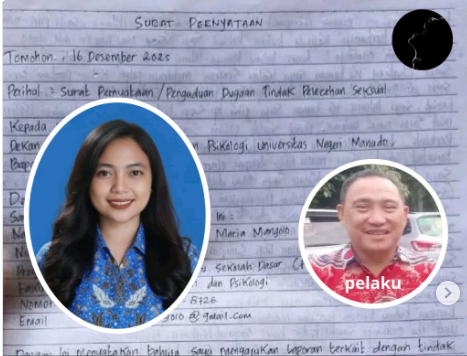 SURAT PERNYATAAN
Tomohon, 16 Desember 2025
Perihal : Surat Pernyataan / Pengaduan Dugaan Tindak Pelecehan Seksual
Kepada
Dekan n Psikologi Universitas Negeri Manado
Bapa
Da
Sa Ini :
Na Maria Mangolo
N
Pr u Sekolah Dasar (
Fak dan Psikologi
Nomor 8726
Email golo @ gmail.com
Dengan Ini Menyatakan bahwa saya mengajukan laporan terkait dengan tindak
pelaku